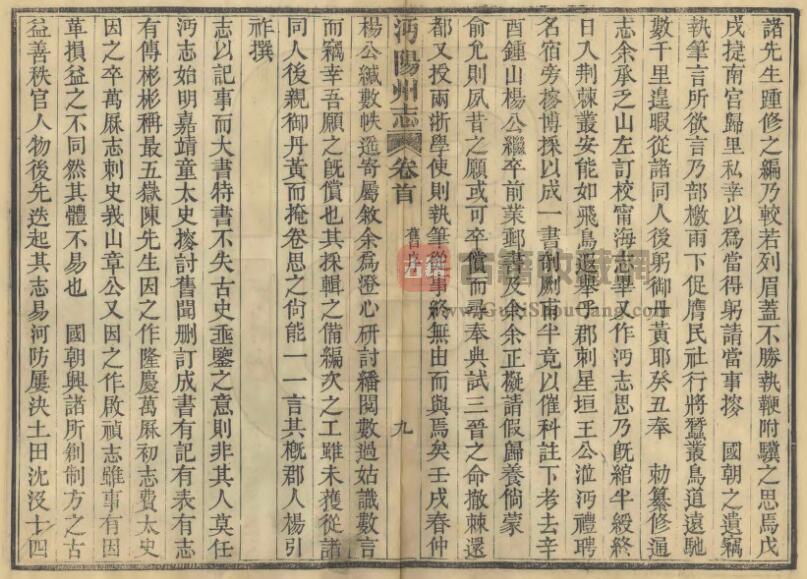 諸先生踵修之編乃較若列眉蓋不勝執鞭附驥之思焉戊
戌捷南宮歸里私幸以爲當得躬請當事搜 國朝之遺竊
執筆言所欲言乃部檄雨下促膺民社行將蠶叢鳥道遠馳
數千里遑暇從諸同人後躬御丹黃耶癸丑奉 勅纂修通
志余承乏山左訂校甯海志畢又作沔志思乃旣綰半綬終
日入荆棘叢安能如飛鳥遐舉乎郡刺星垣王公涖沔禮聘
名宿旁搜博採以成一書剞劂甫半竟以催科註下考去辛
酉鍾山楊公繼卒前業郵書及余余正擬請假歸養倘蒙
俞允則夙昔之願或可卒償而尋奉典試三晉之命撤棘還
都又投兩浙學使則執筆從事終無由而與焉矣壬戌春仲
沔陽州志 卷首 舊 九
楊公緘數帙遥寄屬敘余爲澄心硏討繙閱數過姑識數言
而竊幸吾願之旣償也其採輯之備編次之工雖未獲從諸
同人後親御丹黃而掩卷思之尙能一一言其槪郡人楊引
祚撰
志以記事而大書特書不失古史垂鑒之意則非其人莫任
沔志始明嘉靖童太史搜討舊聞刪訂成書有記有表有志
有傳彬彬稱最五嶽陳先生因之作隆慶萬厤初志費太史
因之卒萬厤志刺史峩山章公又因之作啟禎志雖事有因
革損益之不同然其體不易也 國朝興諸所剏制方之古
益善秩官人物後先迭起其志易河防屢決土田沈沒十四
古籍收藏网
www.GujiShouCang.com